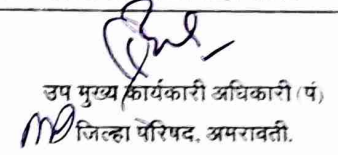 उप मुख्य कार्यकारी अधिकारी (पं)
जिल्हा परिषद, अमरावती.